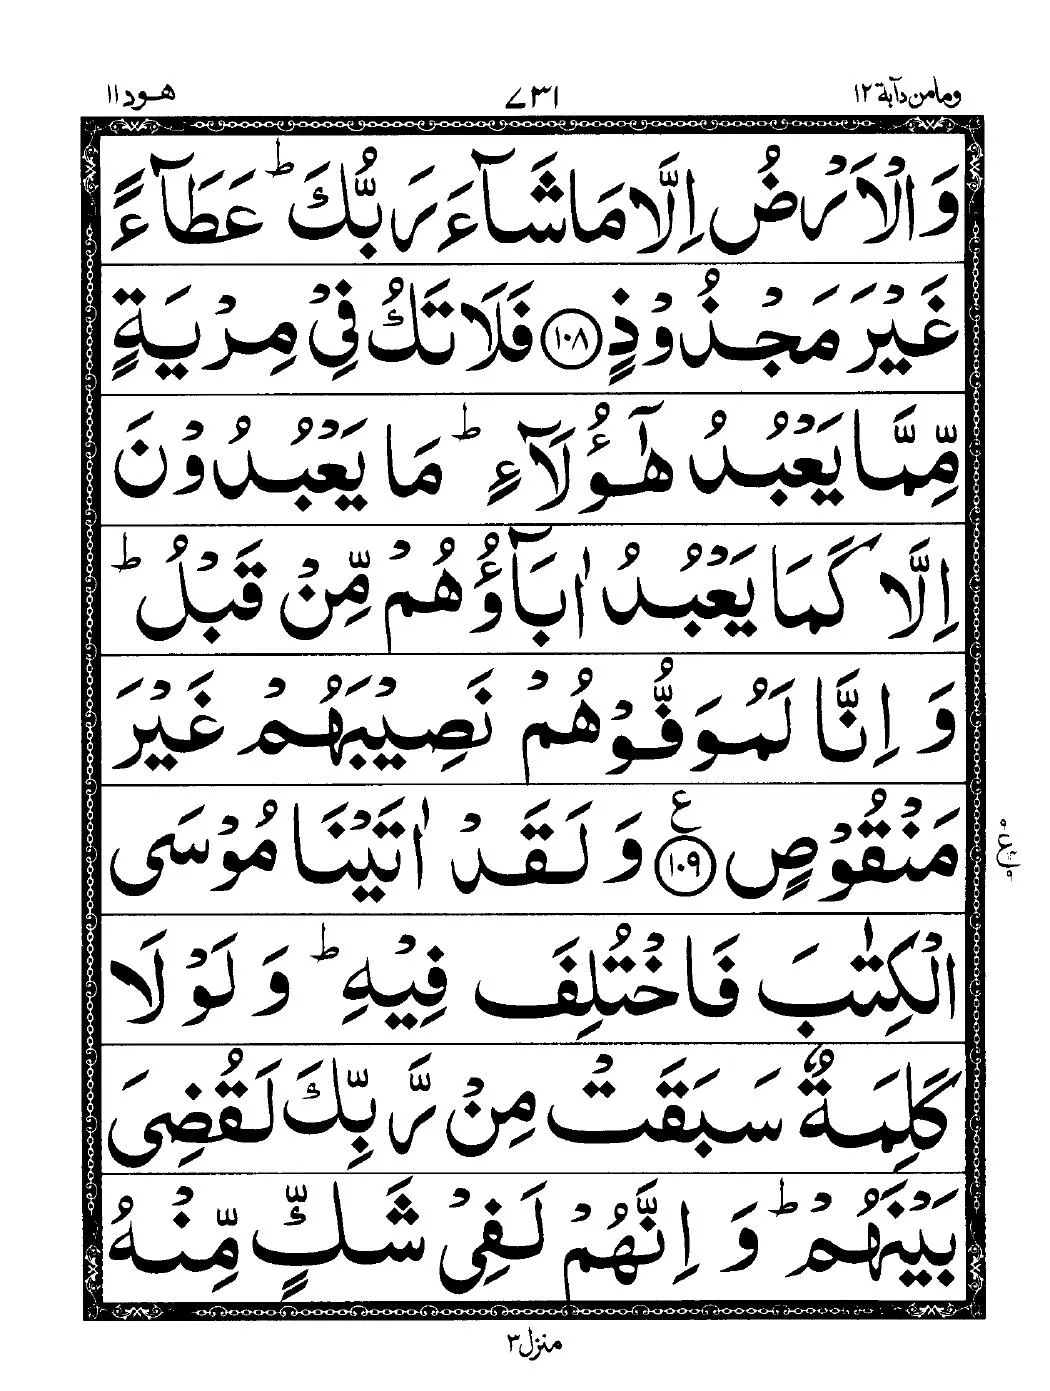 ومامن دآبة ١٢
٧٣١
هود ١١
وَالْاَرْضُ اِلَّا مَا شَآءَ رَبُّكَ ؕ عَطَآءً
غَيْرَ مَجْذُوْذٍ ﴿١٠٨﴾ فَلَا تَكُ فِيْ مِرْيَةٍ
مِّمَّا يَعْبُدُ هٰٓؤُلَآءِ ؕ مَا يَعْبُدُوْنَ
اِلَّا كَمَا يَعْبُدُ اٰبَآؤُهُمْ مِّنْ قَبْلُ ؕ
وَ اِنَّا لَمُوَفُّوْهُمْ نَصِيْبَهُمْ غَيْرَ
مَنْقُوْصٍ ﴿١٠٩﴾ ع وَ لَقَدْ اٰتَيْنَا مُوْسَى
الْكِتٰبَ فَاخْتُلِفَ فِيْهِ ؕ وَ لَوْلَا
كَلِمَةٌ سَبَقَتْ مِنْ رَّبِّكَ لَقُضِىَ
بَيْنَهُمْ ؕ وَ اِنَّهُمْ لَفِيْ شَكٍّ مِّنْهُ
منزل ٣